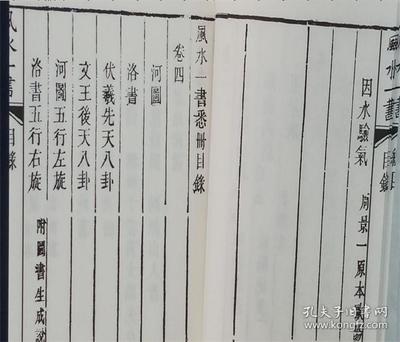 因水驗氣　周景一原本
風水一書悉冊目錄
卷四
河圖
洛書
伏羲先天八卦
文王後天八卦
河圖五行左旋
洛書五行右旋　附圖書生成說
風水一書　目錄
孔夫子旧书网
www.kongfz.com